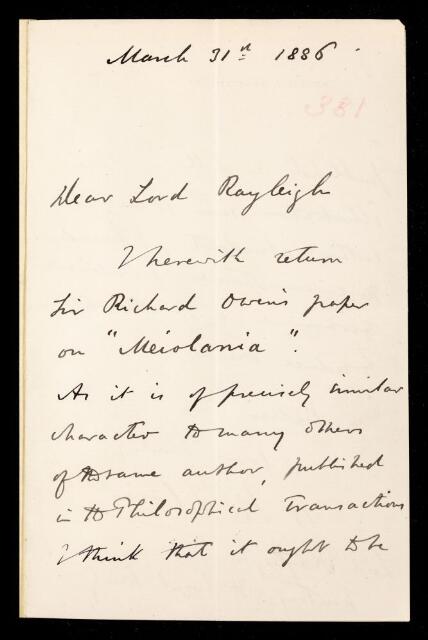 March 31st 1886.
381
Dear Lord Rayleigh
I herewith return
Sir Richard Owen's paper
on "Meiolania".
As it is of precisely similar
character to many others
of the same author, published
in the Philosophical Transactions
I think that it ought to be